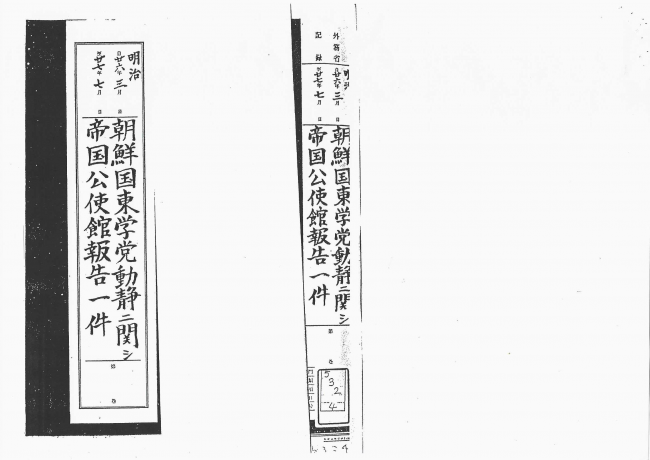 明治
自廿六年三月 日
至廿七年七月 日
朝鮮国東学党動静ニ関シ
帝国公使館報告一件
第 巻
外務省
記録
明治
自廿六年三月 日
至廿七年七月 日
朝鮮国東学党動静ニ関シ
帝国公使館報告一件
第 巻
5
3
2
4